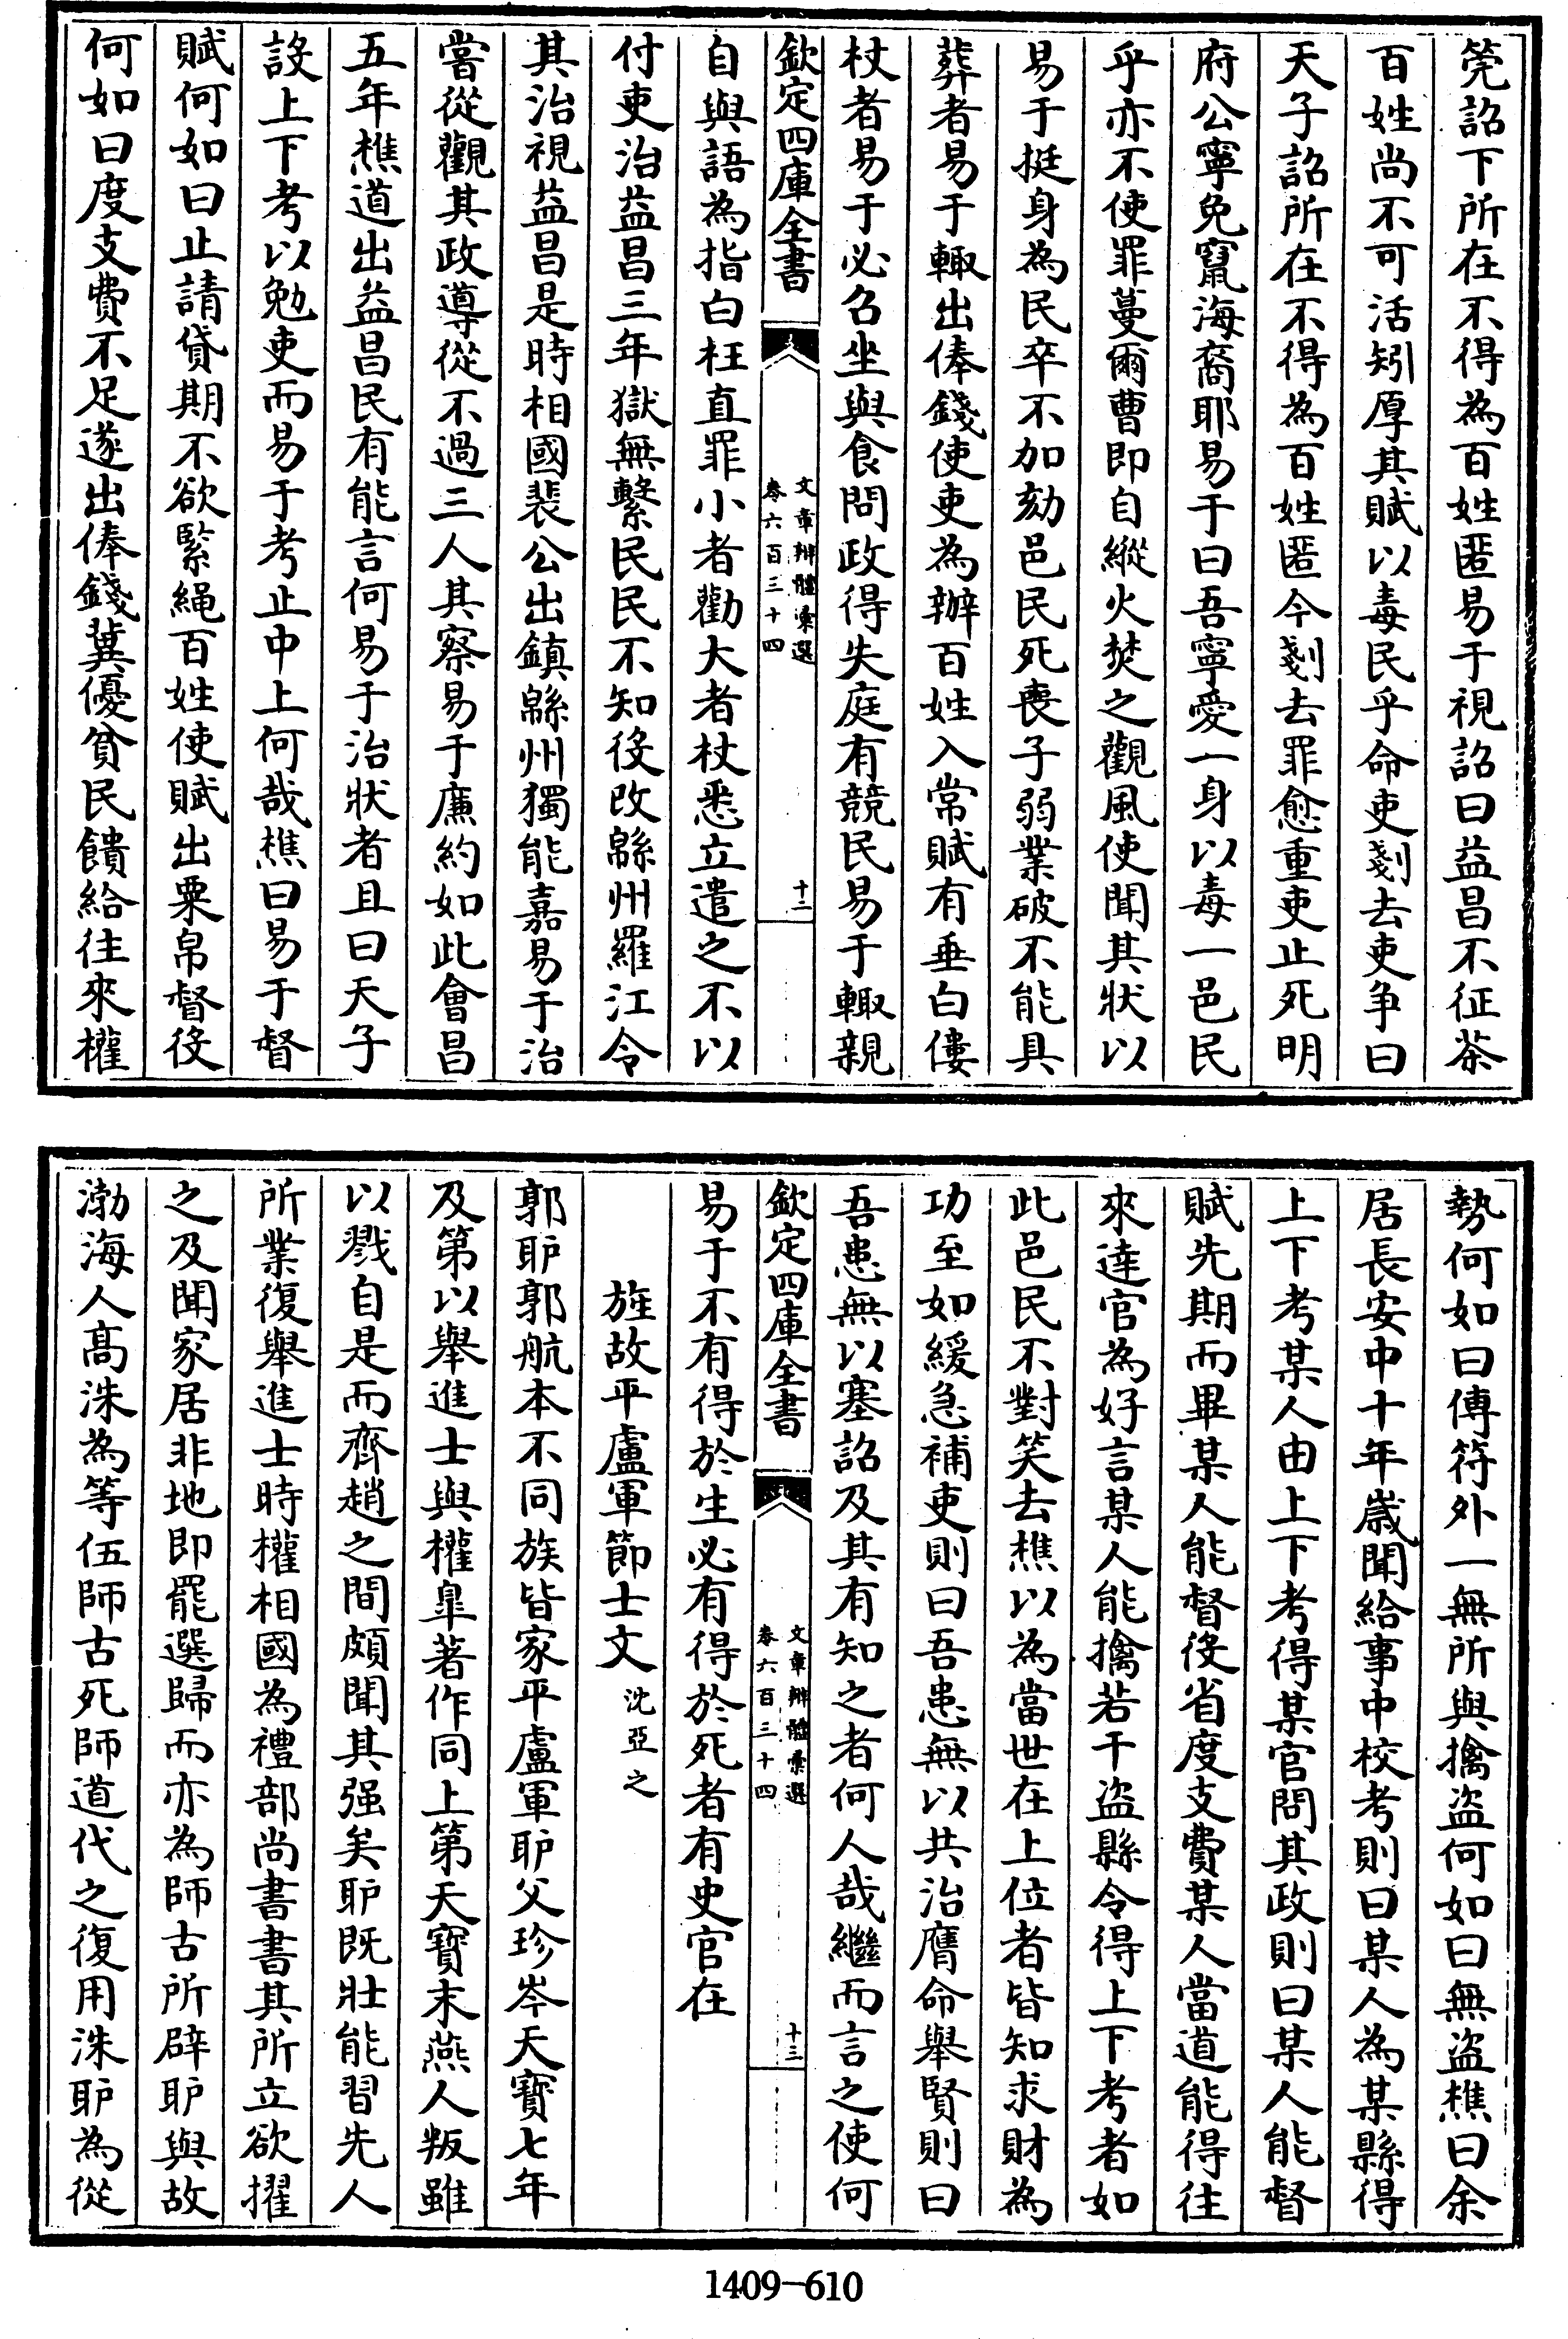 筦詔下所在不得為百姓匿易于視詔曰益昌不征茶
百姓尚不可活矧厚其賦以毒民乎命吏剗去吏争曰
天子詔所在不得為百姓匿今剗去罪愈重吏止死明
府公寧免竄海裔耶易于曰吾寧愛一身以毒一邑民
乎亦不使罪蔓爾曹即自縱火焚之觀風使聞其狀以
易于挺身為民卒不加劾邑民死喪子弱業破不能具
葬者易于輙出俸錢使吏為辦百姓入常賦有垂白僂
杖者易于必召坐與食問政得失庭有競民易于輙親
欽定四庫全書
文章辨體彙選
卷六百三十四
十二
自與語為指白枉直罪小者勸大者杖悉立遣之不以
付吏治益昌三年獄無繫民民不知役改緜州羅江令
其治視益昌是時相國裴公出鎮緜州獨能嘉易于治
嘗從觀其政導從不過三人其察易于廉約如此會昌
五年樵道出益昌民有能言何易于治狀者且曰天子
設上下考以勉吏而易于考止中上何哉樵曰易于督
賦何如曰止請貸期不欲緊繩百姓使賦出粟帛督役
何如曰度支費不足遂出俸錢冀優貧民饋給往來權
勢何如曰傳符外一無所與擒盗何如曰無盗樵曰余
居長安中十年歲聞給事中校考則曰某人為某縣得
上下考某人由上下考得某官問其政則曰某人能督
賦先期而畢某人能督役省度支費某人當道能得往
來達官為好言某人能擒若干盗縣令得上下考者如
此邑民不對笑去樵以為當世在上位者皆知求財為
功至如緩急補吏則曰吾患無以共治膺命舉賢則曰
吾患無以塞詔及其有知之者何人哉繼而言之使何
欽定四庫全書
文章辨體彙選
卷六百三十四
十三
易于不有得於生必有得於死者有史官在
旌故平盧軍節士文 沈亞之
郭䢵郭航本不同族皆家平盧軍䢵父珍岑天寶七年
及第以舉進士與權臯著作同上第天寶末燕人叛雖
以戮自是而齊趙之間頗聞其强矣䢵既壯能習先人
所業復舉進士時權相國為禮部尚書書其所立欲擢
之及聞家居非地即罷選歸而亦為師古所辟䢵與故
渤海人高洙為等伍師古死師道代之復用洙䢵為從
1409-610